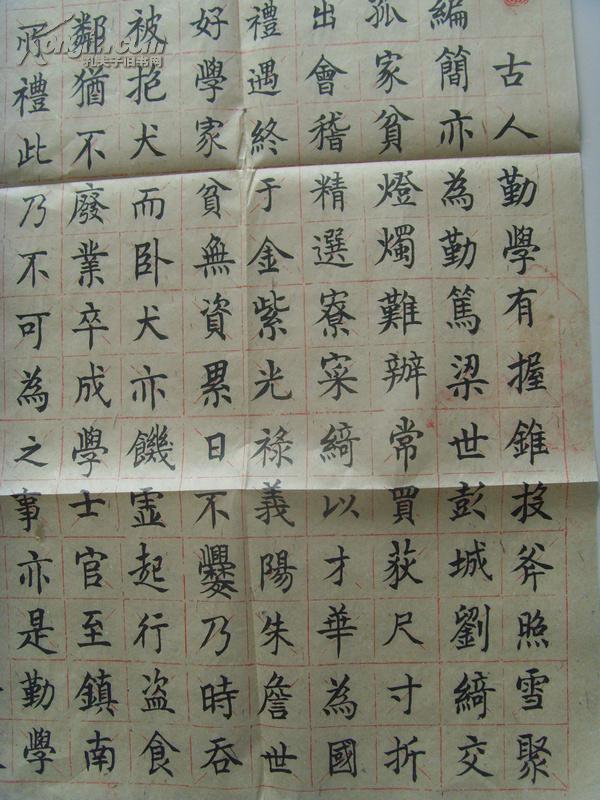 古人勤學有握錐投斧照雪聚
編簡亦為勤篤梁世彭城劉綺交
孤家貧燈燭難辦常買荻尺寸折
出會稽精選寮寀綺以才華為國
禮遇終于金紫光祿義陽朱詹世
好學家貧無資累日不爨乃時吞
被抱犬而卧犬亦饑虛起行盜食
鄰猶不廢業卒成學士官至鎮南
所禮此乃不可為之事亦是勤學
孔夫子旧书网